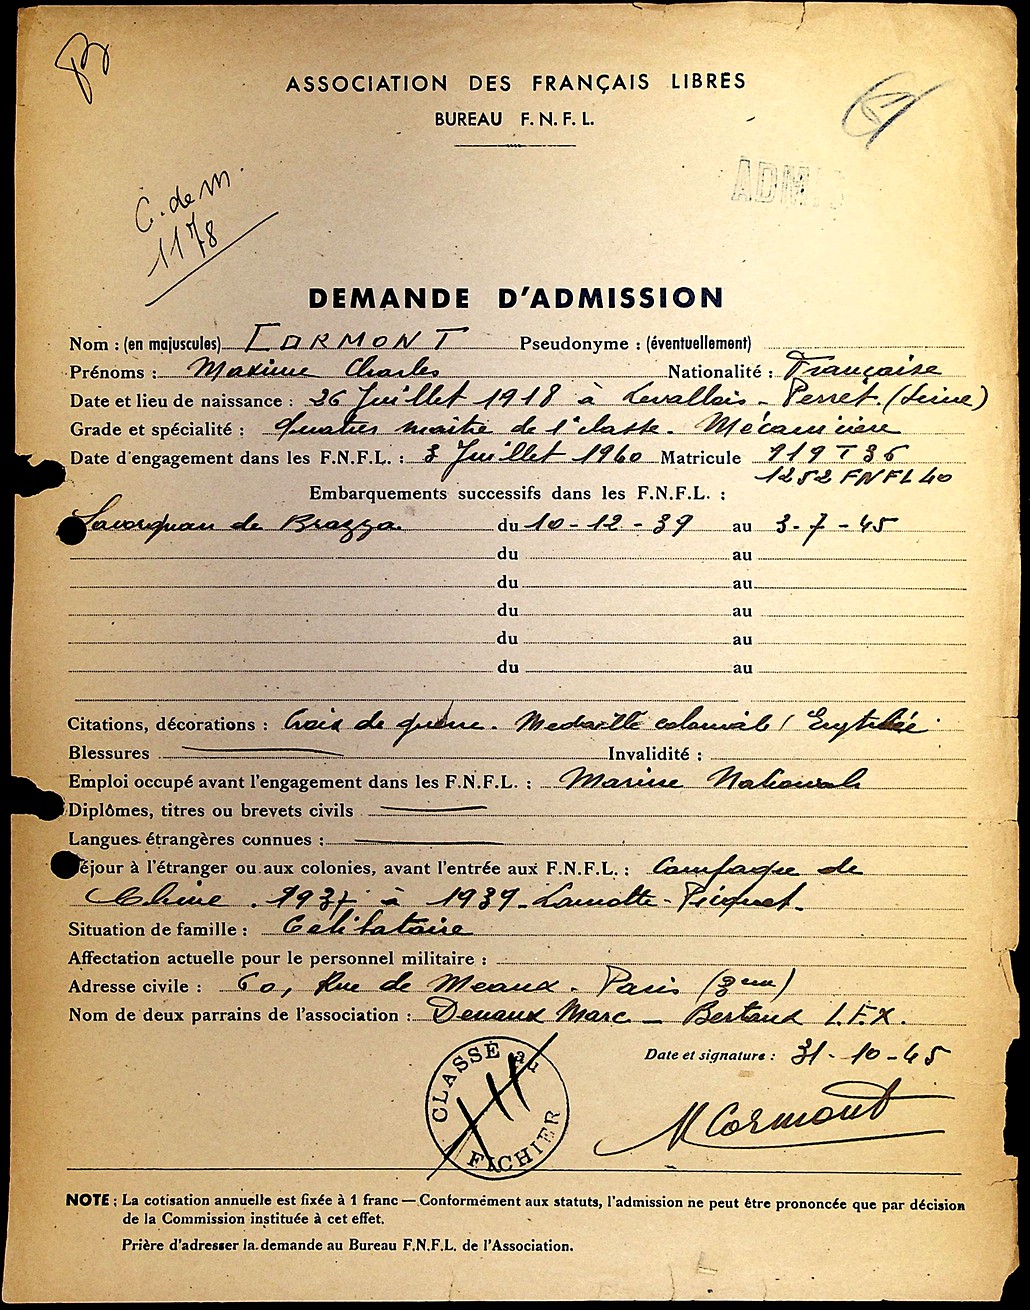 ASSOCIATION DES FRANÇAIS LIBRES
BUREAU F. N. F. L.
ADMIS
C. de M.
1178
DEMANDE D'ADMISSION
Nom : (en majuscules) CORMONT Pseudonyme : (éventuellement)
Prénoms : Maxime Charles Nationalité : Française
Date et lieu de naissance : 26 Juillet 1918 à Levallois - Perret. (Seine)
Grade et spécialité : Quatier maitre de 1° classe. Mécanicien
Date d'engagement dans les F.N.F.L. : 3 Juillet 1940 Matricule 919 T 36
1252 FNFL 40
Embarquements successifs dans les F.N.F.L. :
Savorgnan de Brazza. du 10-12-39 au 3-7-45
du au
du au
du au
du au
du au
Citations, décorations : Croix de guerre. Medaille coloniale ( Erythrée
Blessures Invalidité :
Emploi occupé avant l'engagement dans les F.N.F.L. : Marine Nationale
Diplômes, titres ou brevets civils
Langues étrangères connues :
Séjour à l'étranger ou aux colonies, avant l'entrée aux F.N.F.L. : Campagne de
Chine . 1937 à 1939 - Lamotte - Picquet.
Situation de famille : Célibataire
Affectation actuelle pour le personnel militaire :
Adresse civile : 60, Rue de Meaux. Paris
Nom de deux parrains de l'association : Denaux Marc - Bertaud L.F.X.
Date et signature : 31-10-45
M Cormont
CLASSÉ au
FICHIER
NOTE : La cotisation annuelle est fixée à 1 franc — Conformément aux statuts, l'admission ne peut être prononcée que par décision
de la Commission instituée à cet effet.
Prière d'adresser la demande au Bureau F.N.F.L. de l'Association.